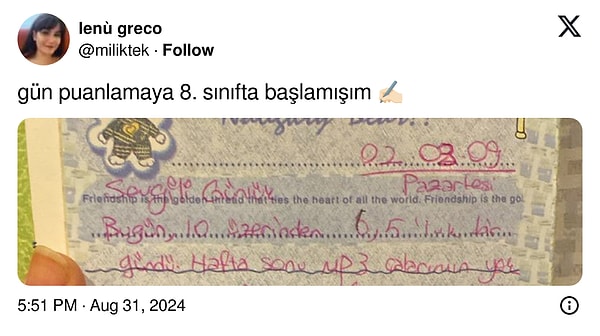 lenù greco
@miliktek · Follow
gün puanlamaya 8. sınıfta başlamışım ✍🏻
Naughty Bear!!
02 03 09
Sevgili Günlük Pazartesi
Friendship is the golden thread that ties the heart of all the world. Friendship is the go
Bugün, 10 üzerinden 6,5 'luk bir
gündü. Hafta sonu mp3 çalarımın
5:51 PM · Aug 31, 2024